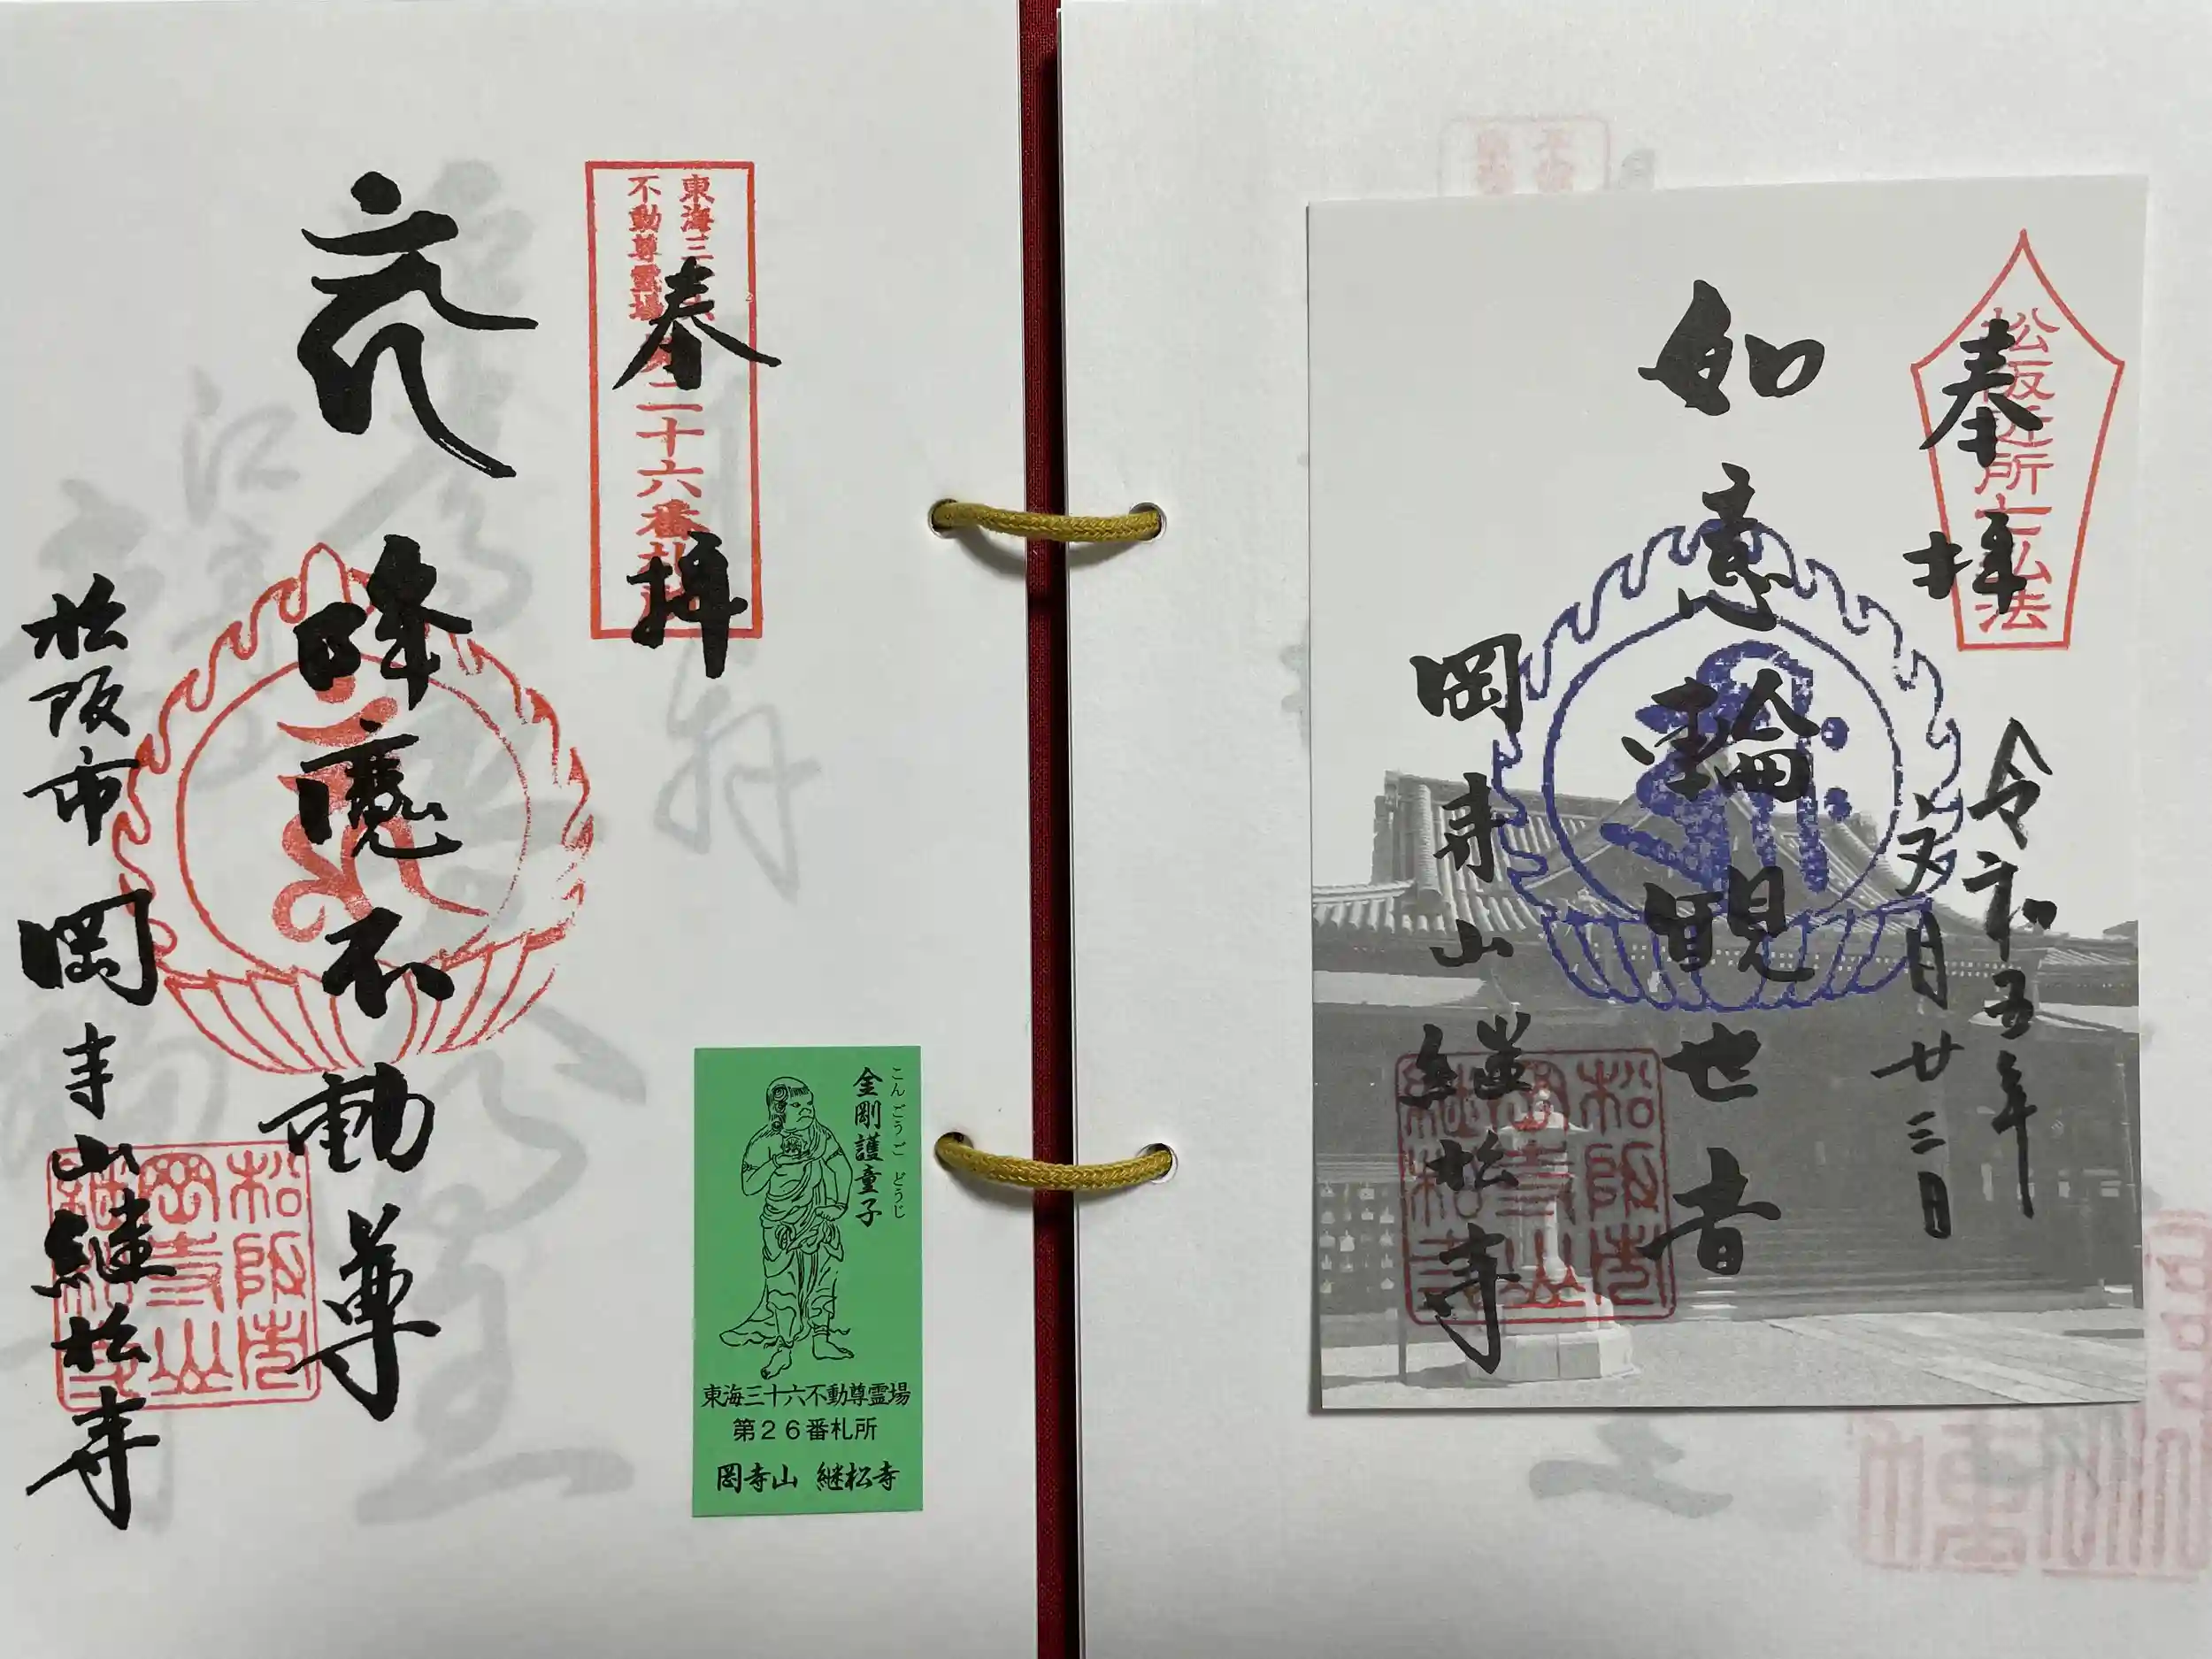 奉拝
松阪近所七仏法
令和五年
弐月廿三日
如意輪観世音
岡寺山継松寺
松阪市
岡寺山
継松寺
奉拝
東海三
不動尊霊場
第二十六番札所
降魔不動尊
松阪市岡寺山継松寺
松阪市
岡寺山
継松寺
こんごうご どうじ
金剛護童子
東海三十六不動尊霊場
第26番札所
岡寺山 継松寺